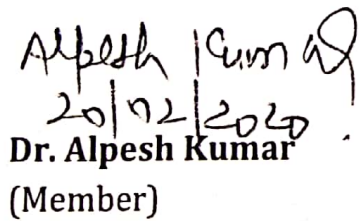 Alpesh Kumar
20/02/2020
Dr. Alpesh Kumar
(Member)